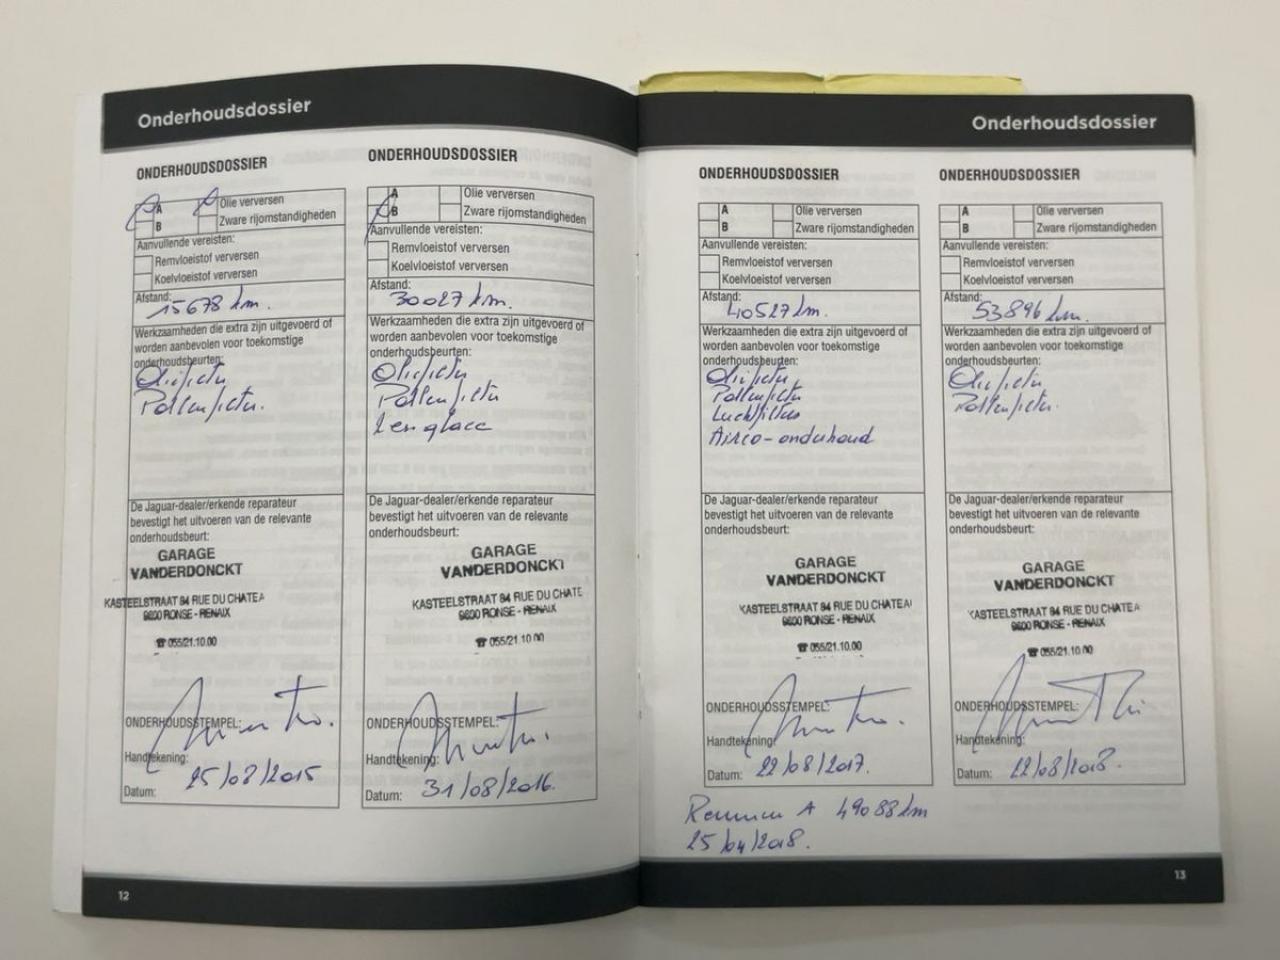 Onderhoudsdossier
ONDERHOUDSDOSSIER
A
Olie verversen
B
Zware rijomstandigheden
Aanvullende vereisten:
Remvloeistof verversen
Koelvloeistof verversen
Afstand:
15678 km.
Werkzaamheden die extra zijn uitgevoerd of
worden aanbevolen voor toekomstige
onderhoudsbeurten:
Oliefilter
Pollenfilter.
De Jaguar-dealer/erkende reparateur
bevestigt het uitvoeren van de relevante
onderhoudsbeurt:
GARAGE
VANDERDONCKT
KASTEELSTRAAT 94 RUE DU CHATEA
9600 RONSE - RENAIX
☎ 055/21.10.00
ONDERHOUDSSTEMPEL:
Handtekening:
Datum:
25/08/2015
ONDERHOUDSDOSSIER
A
Olie verversen
B
Zware rijomstandigheden
Aanvullende vereisten:
Remvloeistof verversen
Koelvloeistof verversen
Afstand:
30027 km.
Werkzaamheden die extra zijn uitgevoerd of
worden aanbevolen voor toekomstige
onderhoudsbeurten:
Oliefilter
Pollenfilter
De Jaguar-dealer/erkende reparateur
bevestigt het uitvoeren van de relevante
onderhoudsbeurt:
GARAGE
VANDERDONCKT
KASTEELSTRAAT 94 RUE DU CHATE
9600 RONSE - RENAIX
☎ 055/21.10.00
ONDERHOUDSSTEMPEL:
Handtekening:
Datum:
31/08/2016.
12
Onderhoudsdossier
ONDERHOUDSDOSSIER
A
Olie verversen
B
Zware rijomstandigheden
Aanvullende vereisten:
Remvloeistof verversen
Koelvloeistof verversen
Afstand:
40527 km.
Werkzaamheden die extra zijn uitgevoerd of
worden aanbevolen voor toekomstige
onderhoudsbeurten:
Oliefilter
Pollenfilter
Luchtfilter
Airco-onderhoud
De Jaguar-dealer/erkende reparateur
bevestigt het uitvoeren van de relevante
onderhoudsbeurt:
GARAGE
VANDERDONCKT
KASTEELSTRAAT 94 RUE DU CHATEAU
9600 RONSE - RENAIX
☎ 055/21.10.00
ONDERHOUDSSTEMPEL:
Handtekening:
Datum:
22/08/2017.
A 49088 km
25/04/2018.
ONDERHOUDSDOSSIER
A
Olie verversen
B
Zware rijomstandigheden
Aanvullende vereisten:
Remvloeistof verversen
Koelvloeistof verversen
Afstand:
53896 km.
Werkzaamheden die extra zijn uitgevoerd of
worden aanbevolen voor toekomstige
onderhoudsbeurten:
Oliefilter
Pollenfilter.
De Jaguar-dealer/erkende reparateur
bevestigt het uitvoeren van de relevante
onderhoudsbeurt:
GARAGE
VANDERDONCKT
KASTEELSTRAAT 94 RUE DU CHATEA
9600 RONSE - RENAIX
☎ 055/21.10.00
ONDERHOUDSSTEMPEL:
Handtekening:
Datum:
22/08/2018.
13